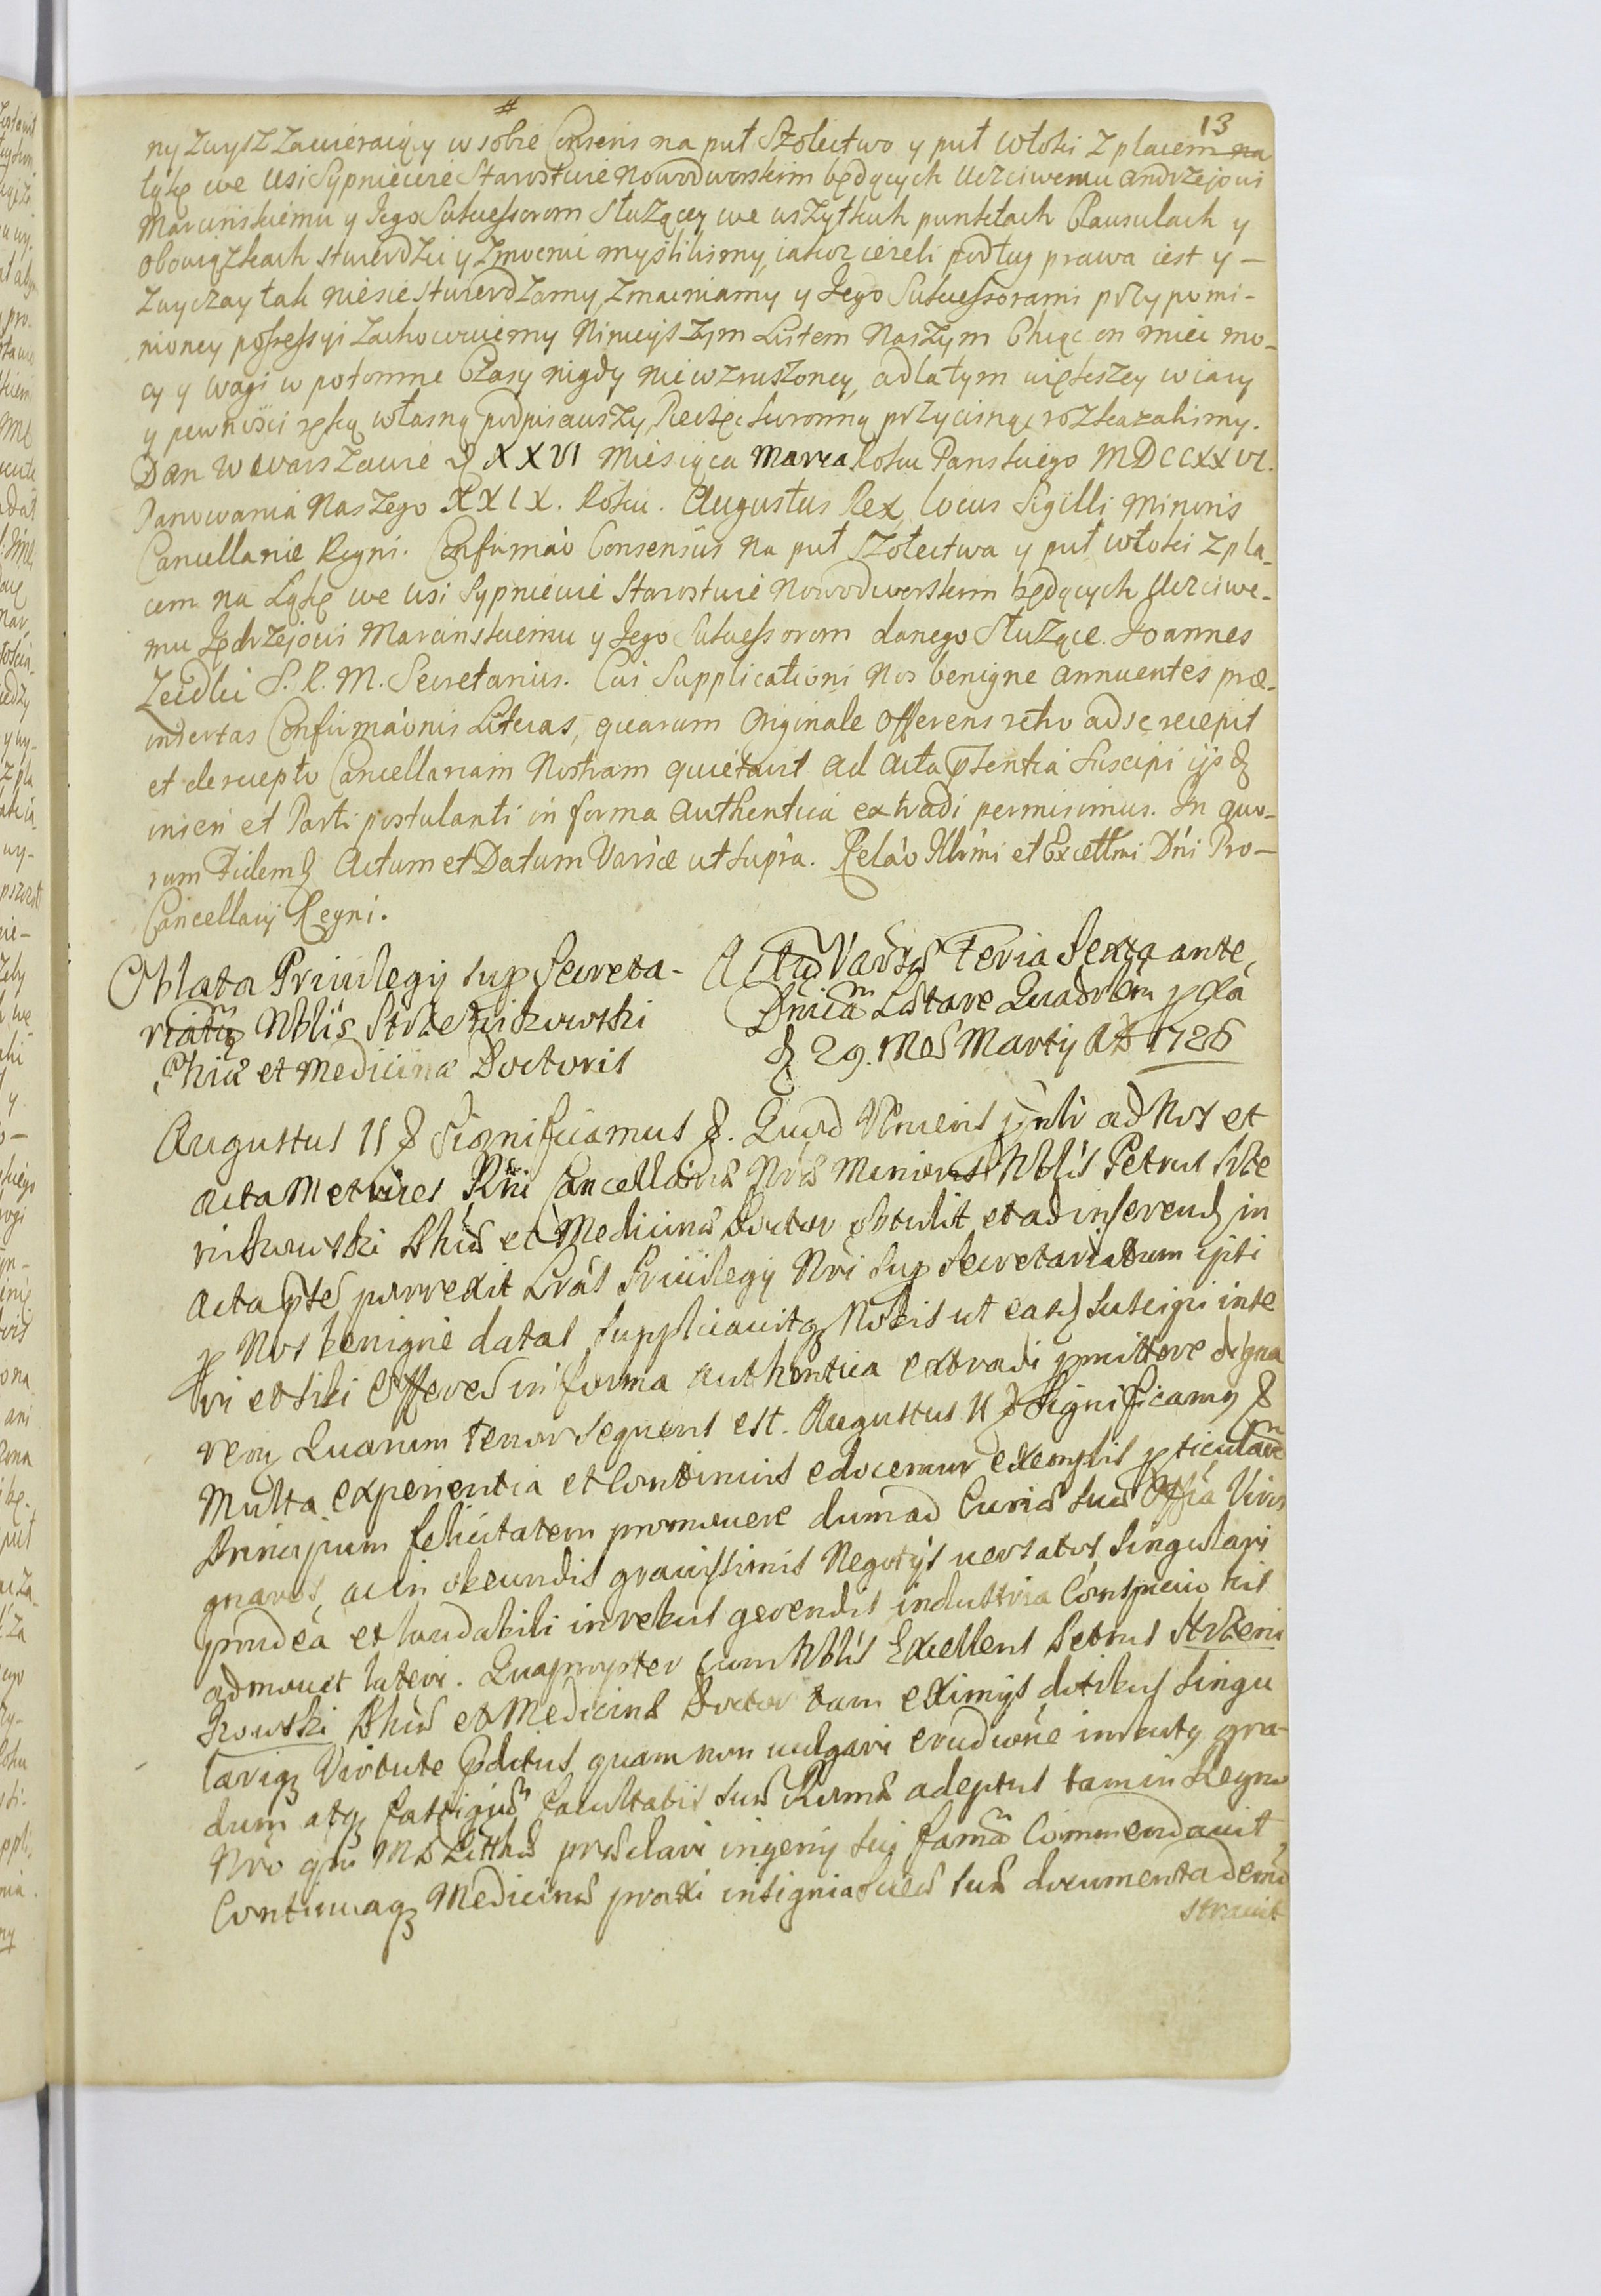 13
ny zwysz zawieraiący w sobie Consens na puł Szołectwo y puł włoki z placem na
łąkę we Wsi Sypniewie Starostwie Nowodworskim będących Uczciwemu Andrzejowi
Marcinskiemu y Jego Sukcessorom służącey we wszytkich punktach Clausulach y
obowiązkach stwierdzić y zmocnić myslilismy, iakoż ieżeli podług prawa iest y –
zwyczay tak niesie stwierdzamy, zmacniamy y Jego Sukcessorami przy pomi-
nioney possessyi zachowuiemy Ninieyszym Listem Naszym Chcąc on mieć mo-
cy y wagi w potomne Czasy nigdy niewzruszoney, a dla tym większey wiary
y pewności ręką własną podpisawszy, Pieczęć koronną przycisnąć rozkazalismy.
Dan w Warszawie d XXVI Miesiąca Marca Roku Panskiego MDCCXXVI.
Panowania Naszego XXIX. Roku. Augustus Rex, locus Sigilli Minoris
Cancellariæ Regni. Confirmao Consensus na puł Szołectwa y puł włoki z pla-
cem na Łąkę we Wsi Sypniewie Starostwie Nowodworskim będących Uczciwe-
mu Jędrzejowi Marcinskiemu y Jego Sukcessorom danego służące. Joannes
Zeidlic S. R. M. Secretarius. Cui Supplicationi Nos benigne annuentes præ-
insertas Confirmaonis Literas, quarum Originale Offerens retro ad se recepit
et de recepto Cancellariam Nostram quietavit ad Acta psentia suscipi ijsq
inseri et Parti postulanti in forma authentica extradi permisimus. In quo-
rum Fidem Actum et Datum Varsæ ut supra. Relao Illrmi et Excellmi Dni Pro-
Cancellarij Regni.
Oblata Privilegij sup Secreta-
riatu Nblis Strzenikowski
Phiæ et Medicinæ Doctoris
Actu Varsæ Feria Sexta ante
Dnicam Lætare Quadrlem pxa
d 29. Mes Martij AD 1726
Augustus II Significamus. Quod Veniens psnlr ad Nos et
Acta Metrices Rni Cancellariæ Nræ Minoris Nblis Petrus Strze
nikowski Phiæ et Medicinæ Doctor obtulit et ad inserend in
Acta pste porrexit Lras Privilegij Nri sup Secretariatum ipsi
p Nos benigne datas Supplicavitq Nobis ut eas suscipi inse
ri et sibi Offeren in forma authentica extradi pmittere digna
remr Quarum tenor sequens est. Augustus II Significamus
Multa experientia et Continuis edocemur exemplis pticularem
Principum felicitatem promovere dum ad Curiæ suæ Offia Viros
gnaros, ac in obeundis gravissimis Negotijs versatos, singulari
prudea et laudabili in rebus gerendis industria Conspicuos his
admovet lateri. Quapropter cum Nblis Excellens Petrus Strzeni
kowski Phiæ et Medicinæ Doctor tam eximijs dotibus singu
lariq Virtute pditus quam non vulgari erudicione imbuty gra-
dum atq fastigium facultatis suæ Romæ adeptus tam in Regno
Nro qm M D Litthæ præclari ingenij sui famam Commendavit
Continuaq Medicinæ praxi insignia suæ documenta demon
stravit